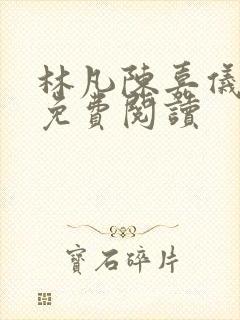 林凡陳嘉儀
免費閱讀
寶石碎片